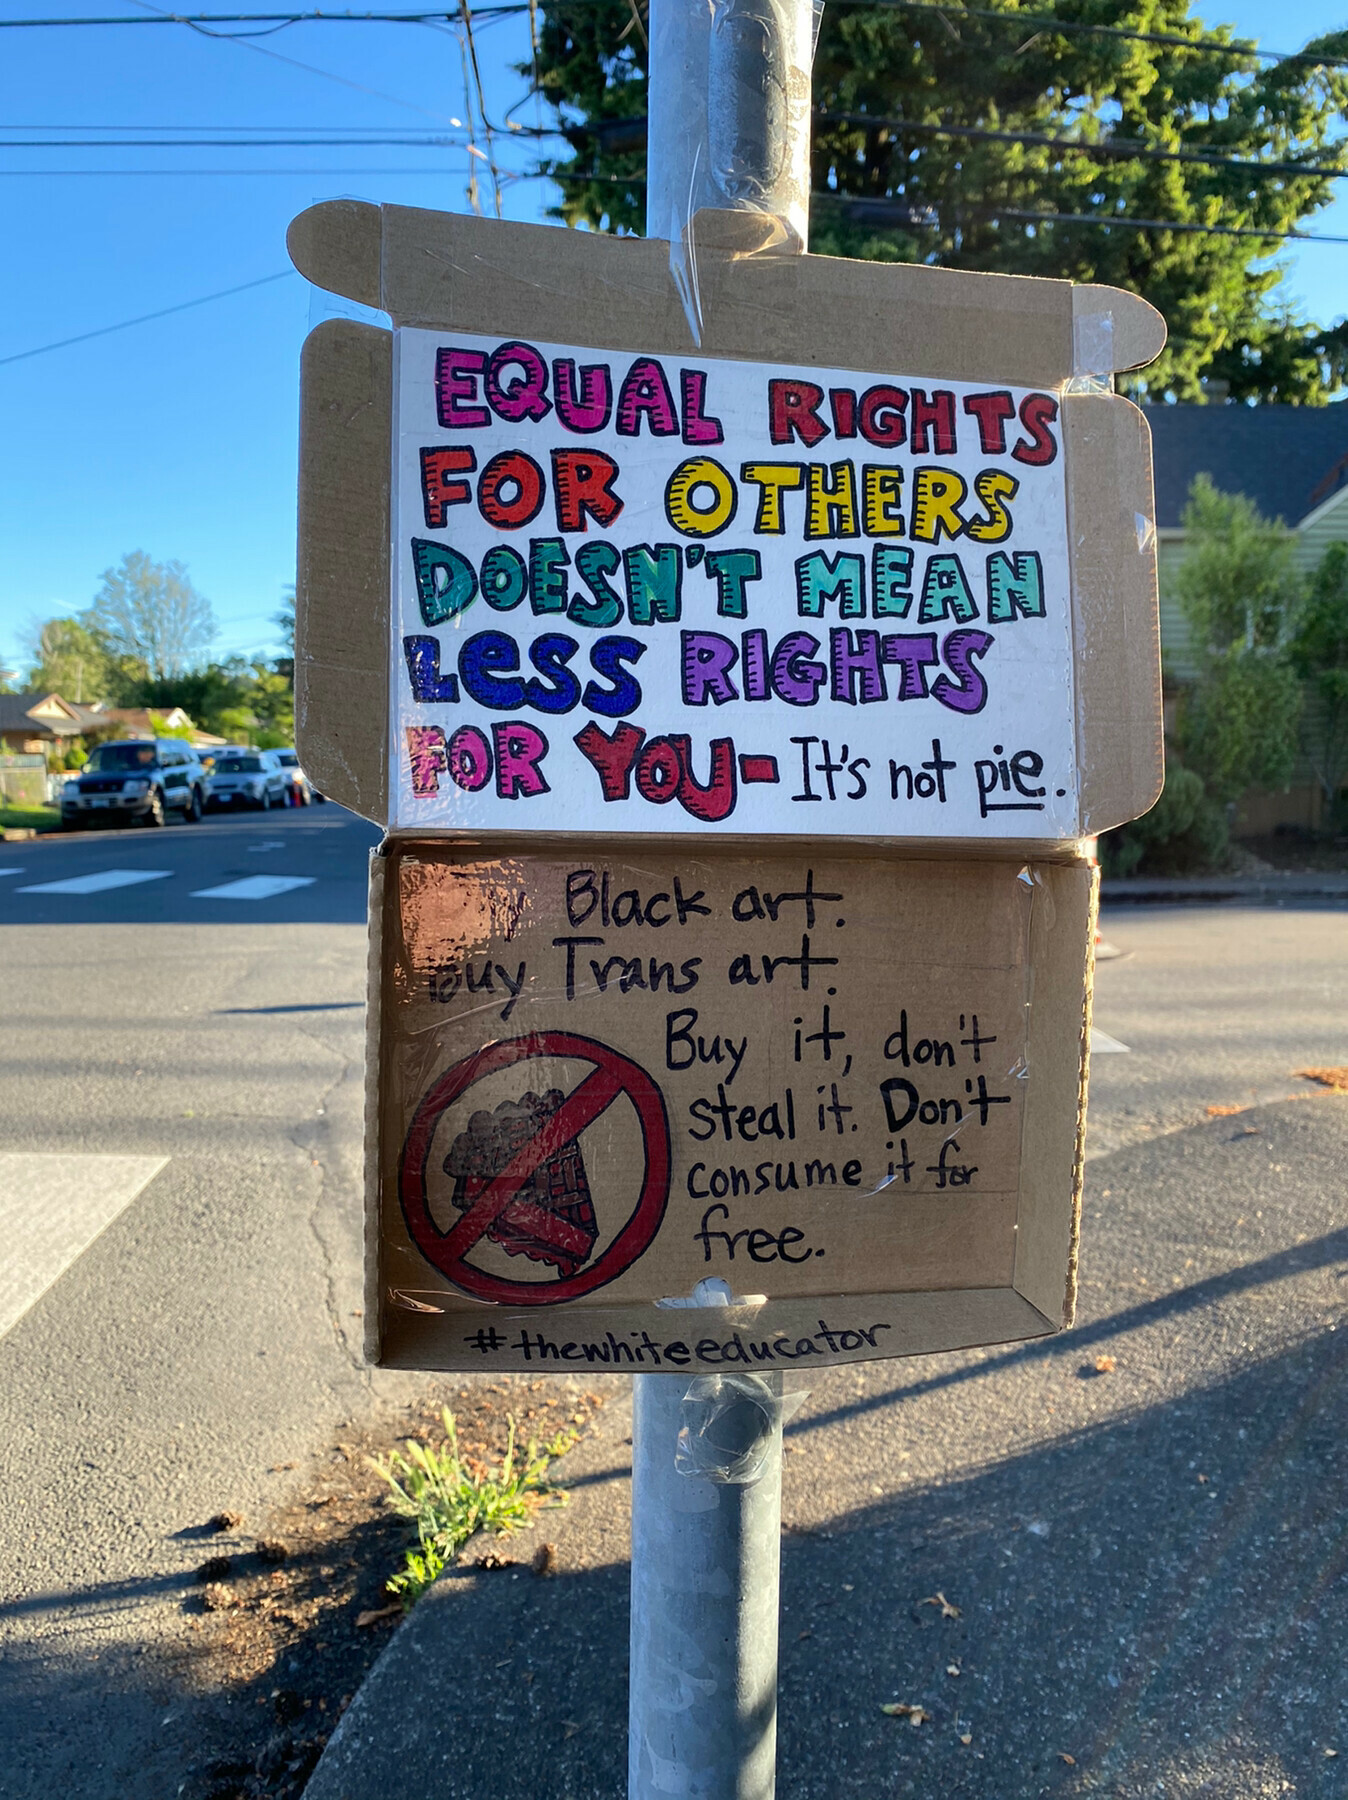 EQUAL RIGHTS
FOR OTHERS
DOESN'T MEAN
LESS RIGHTS
FOR YOU- It's not pie.
Black art.
Buy Trans art.
Buy it, don't
steal it. Don't
consume it for
free.
#thewhiteeducator